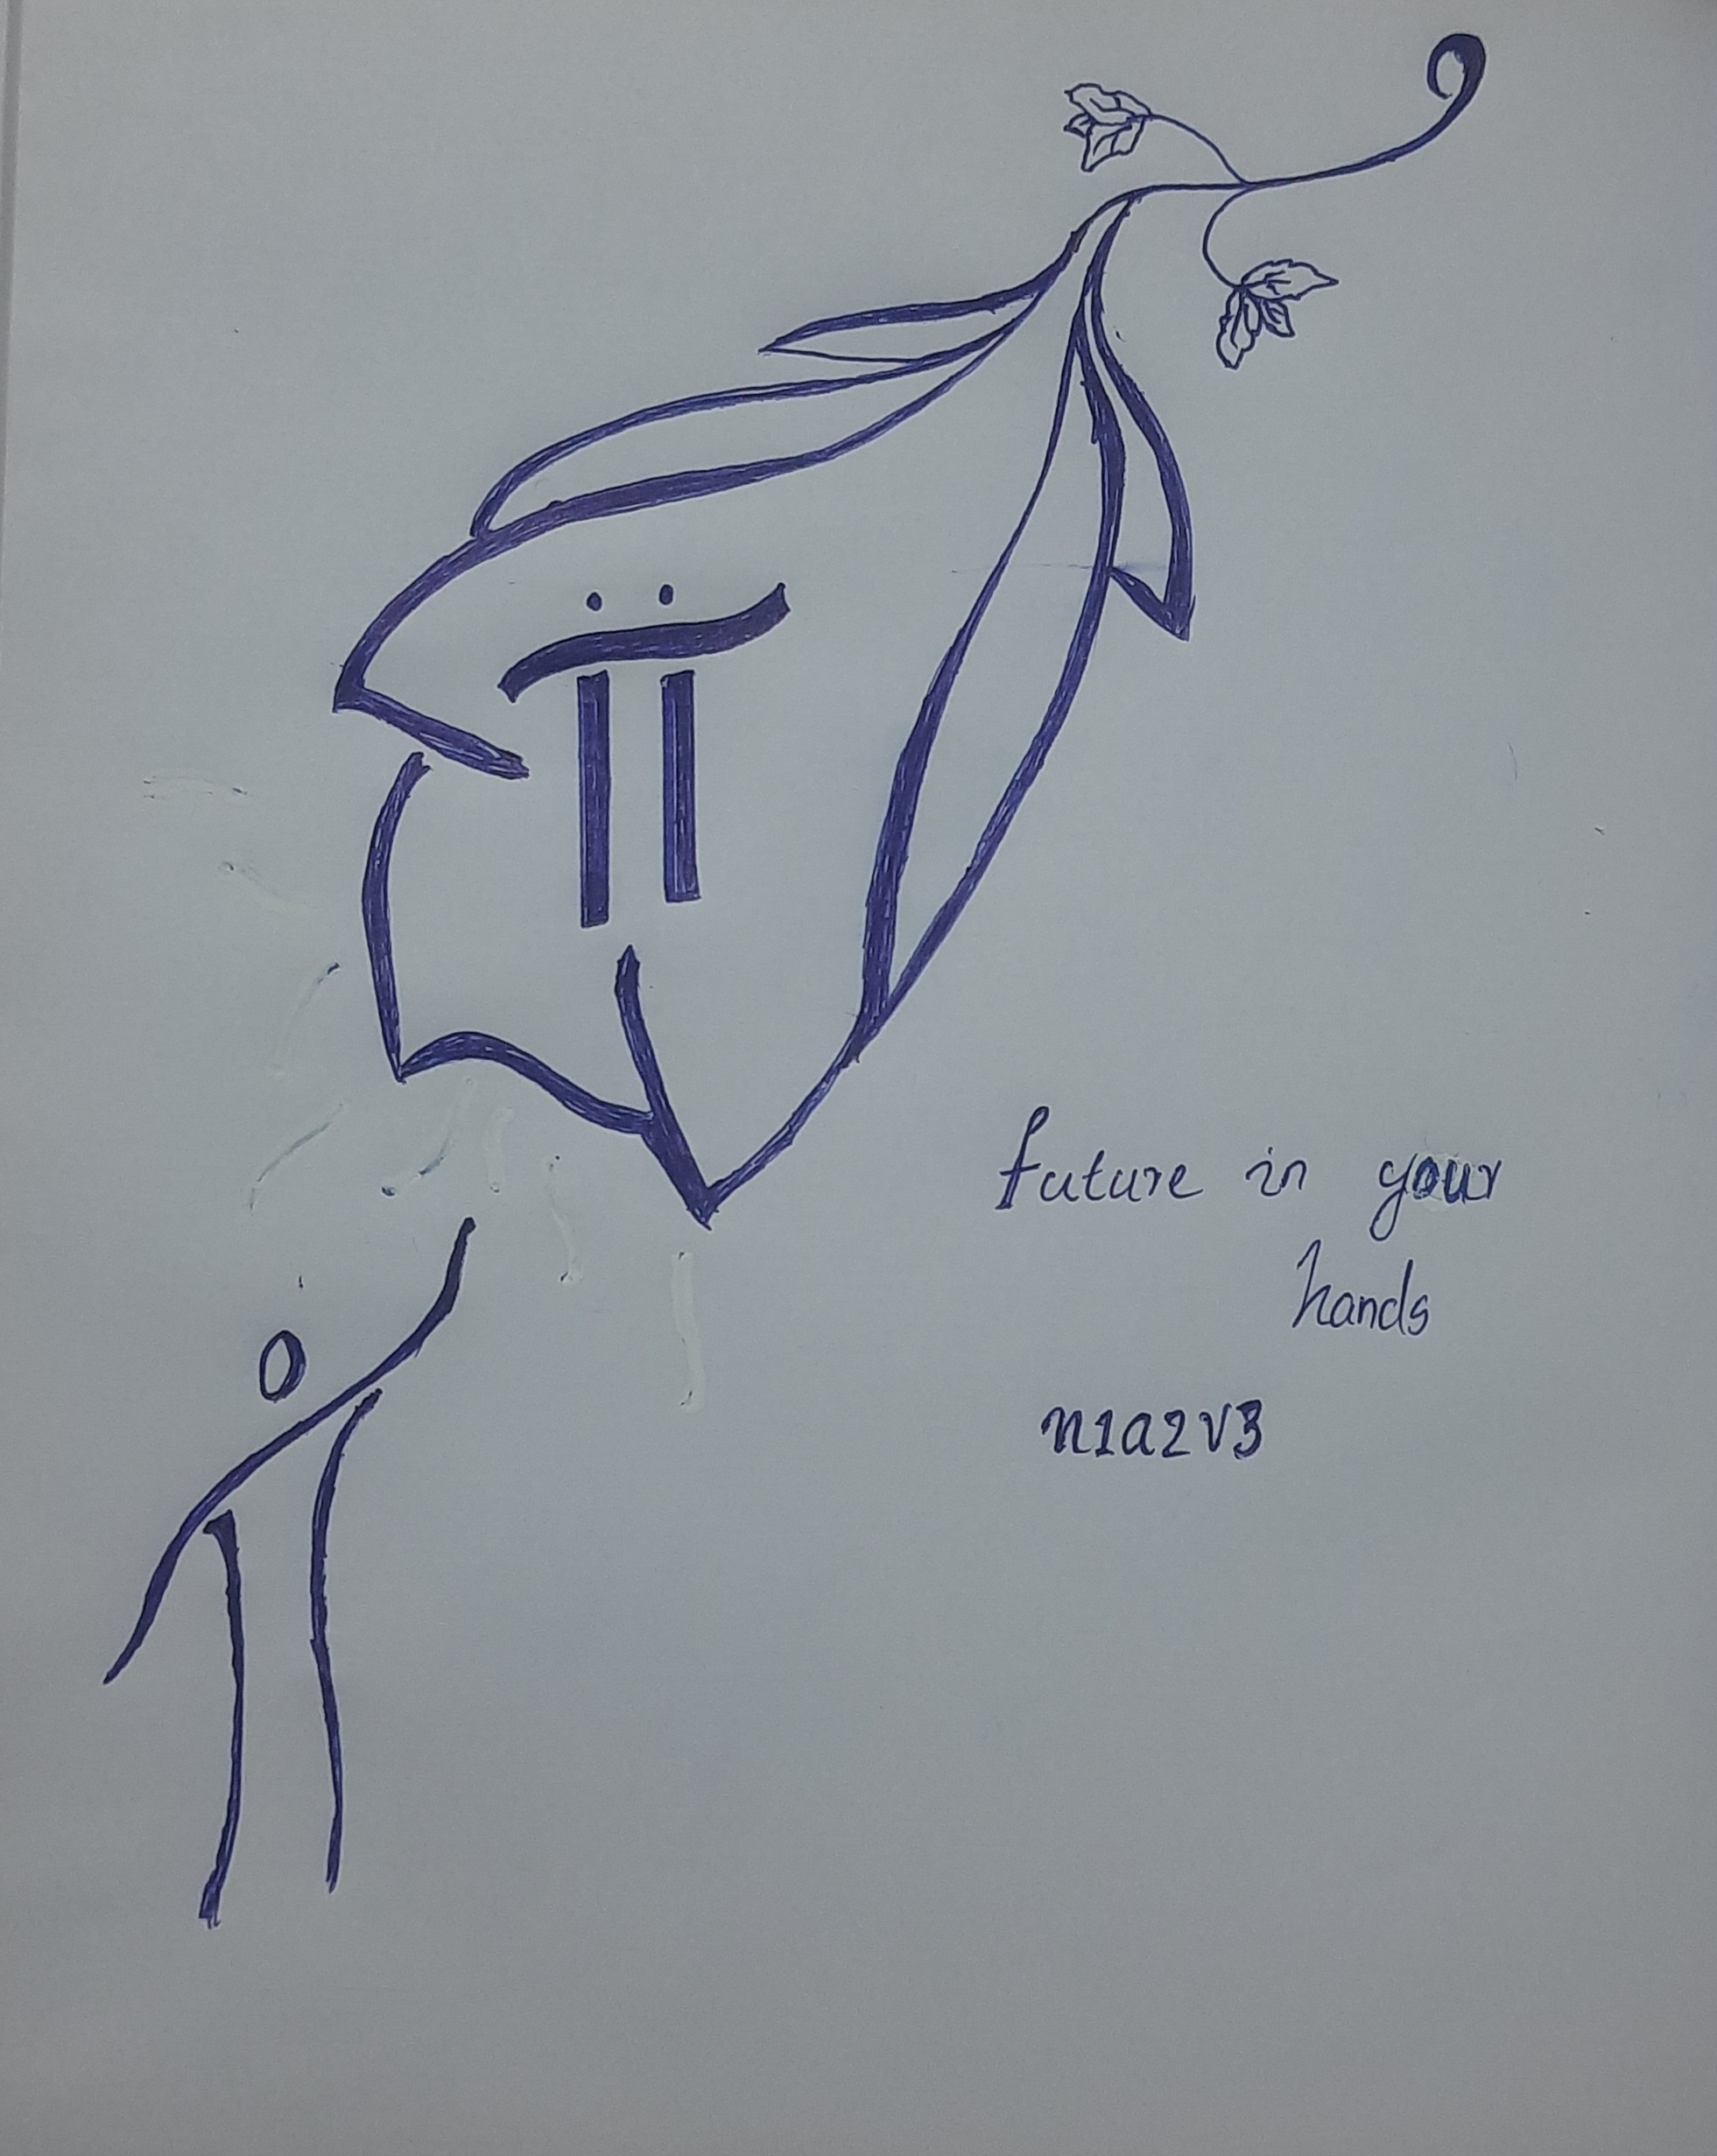 π
future in your
hands
n1a2v3